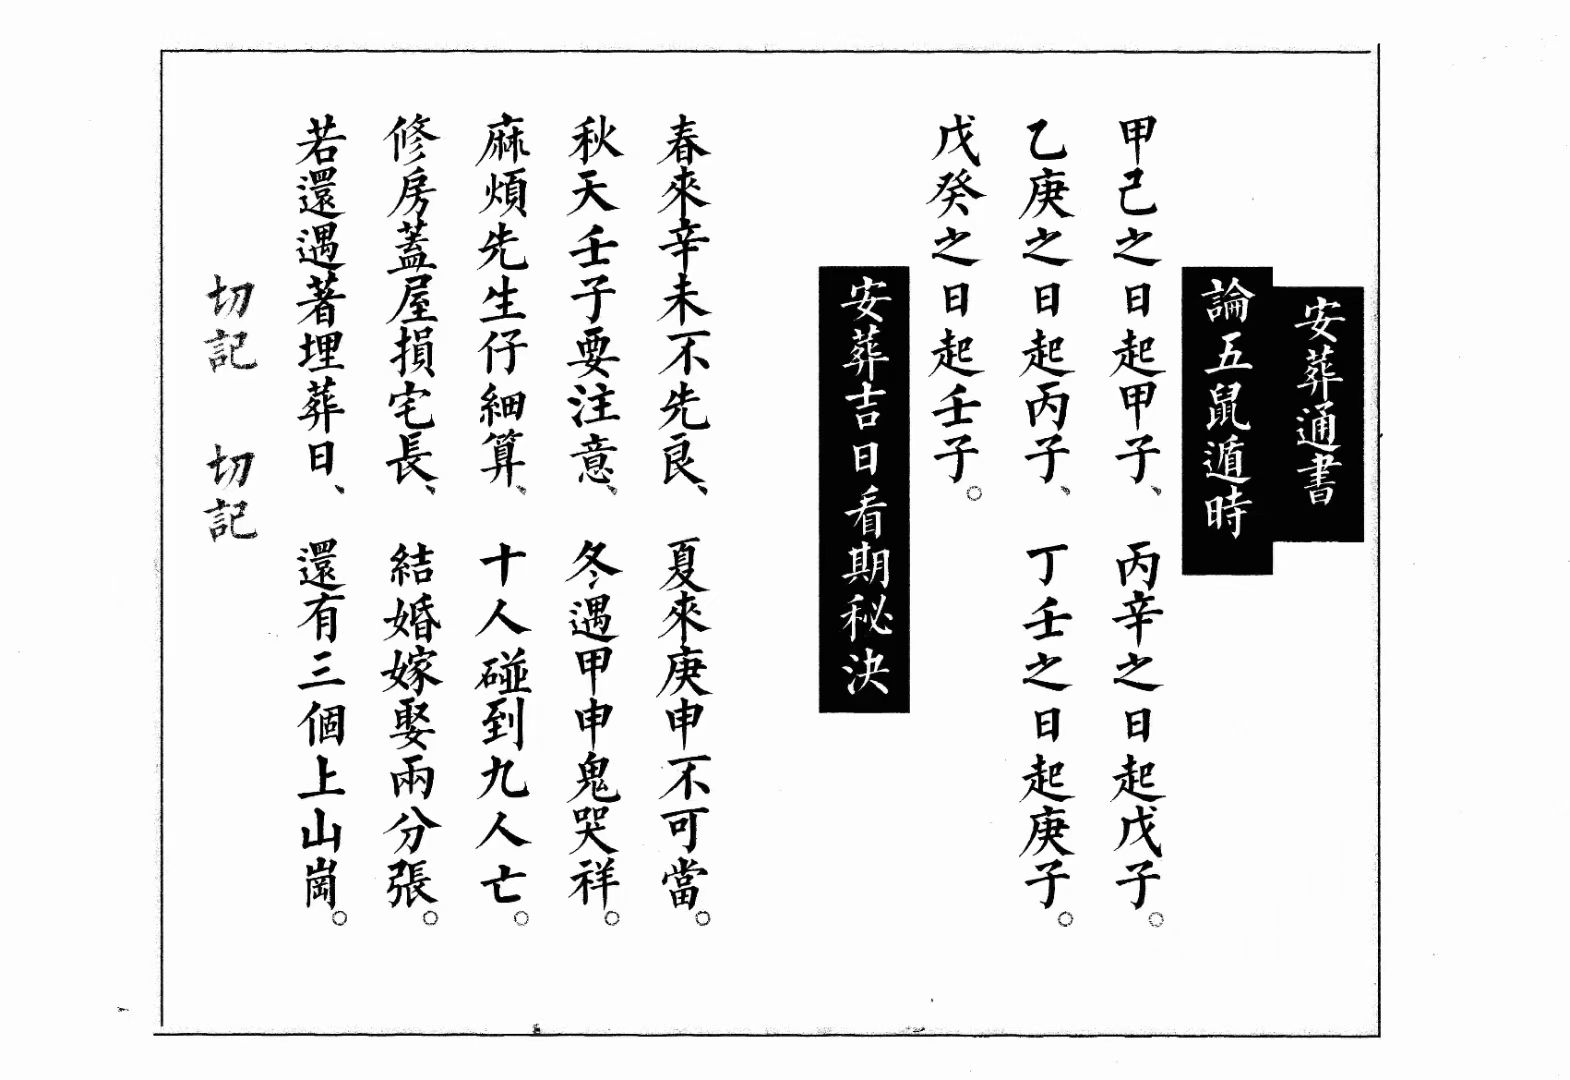 安葬通書
論五鼠遁時
甲己之日起甲子、丙辛之日起戊子。
乙庚之日起丙子、丁壬之日起庚子。
戊癸之日起壬子。
安葬吉日看期秘決
春來辛未不先良、夏來庚申不可當。
秋天壬子要注意、冬遇甲申鬼哭祥。
麻煩先生仔細算、十人碰到九人亡。
修房蓋屋損宅長、結婚嫁娶兩分張。
若還遇著埋葬日、還有三個上山崗。
切記 切記